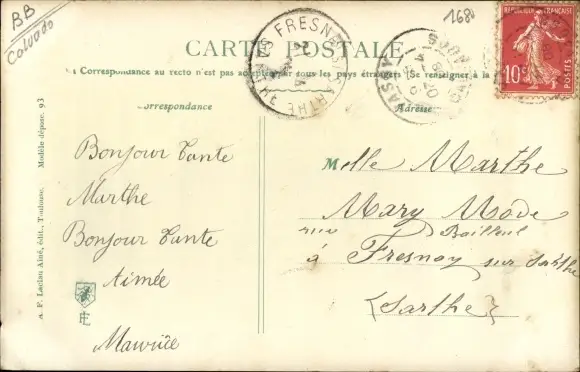 BB
Calvados
168
RÉPUBLIQUE FRANÇAISE
10c
POSTES
CARTE POSTALE
La Correspondance au recto n'est pas acceptée par tous les pays étrangers (Se renseigner à la
Correspondance
Adresse
FRESNAY SARTHE
Bonjour Tante
Marthe
Bonjour Tante
Aimée
Maurice
Melle Marthe
Mary Mode
rue Bailleul
à Fresnay sur Sarthe
{Sarthe}
A. F. Laclau Aîné, édit., Toulouse. Modèle déposé. 93